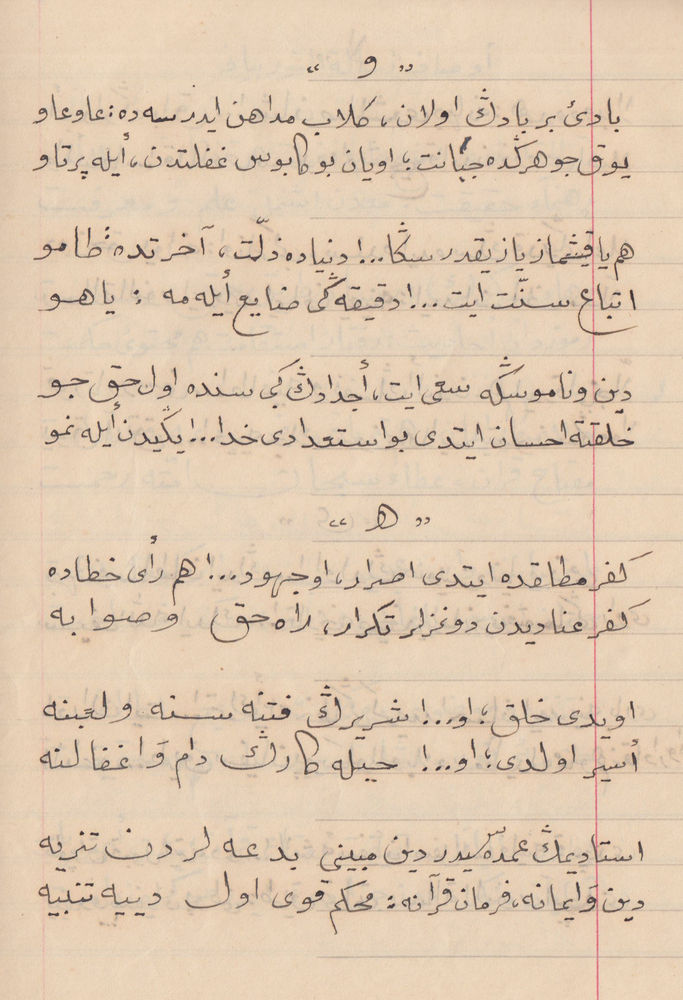 « و »
بادئ بربادڭ اولان، كلاب مداهن ايدرسه ده: عاوعاو
يوق جوهرڭده جبانت؛ اويان بو كابوس غفلتدن، أيله پرتاو
هم ياقيشماز يازيقدر سڭا...! دنياده ذلّت، آخرتده طامو
اتباع سنّت ايت...! دقيقه ڭى ضايع أيله مه : ياهو
دين وناموسڭه سعى ايت، أجدادڭ كبى سنده اول حق جو
خلقتة احسان ايتدى بو استعدادى خدا...! يڭيدن أيله نمو
« هـ »
كفر مطلقده ايتدى اصرار، او جهود...! هم رأى خطاده
كفر عناديدن دونمزلر تكرار، راه حق وصوابه
اويدى خلق؛ او...! شريرڭ فتنه سنه ولعبنه
أسير اولدى؛ او...! حيله كارڭ دام وَاغفالنه
استاديمڭ عمده سيدر دين مبينى بدعه لردن تنزيه
دين وَايمانه، فرمان قرآنه: محكم قوى اول دييه تنبيه